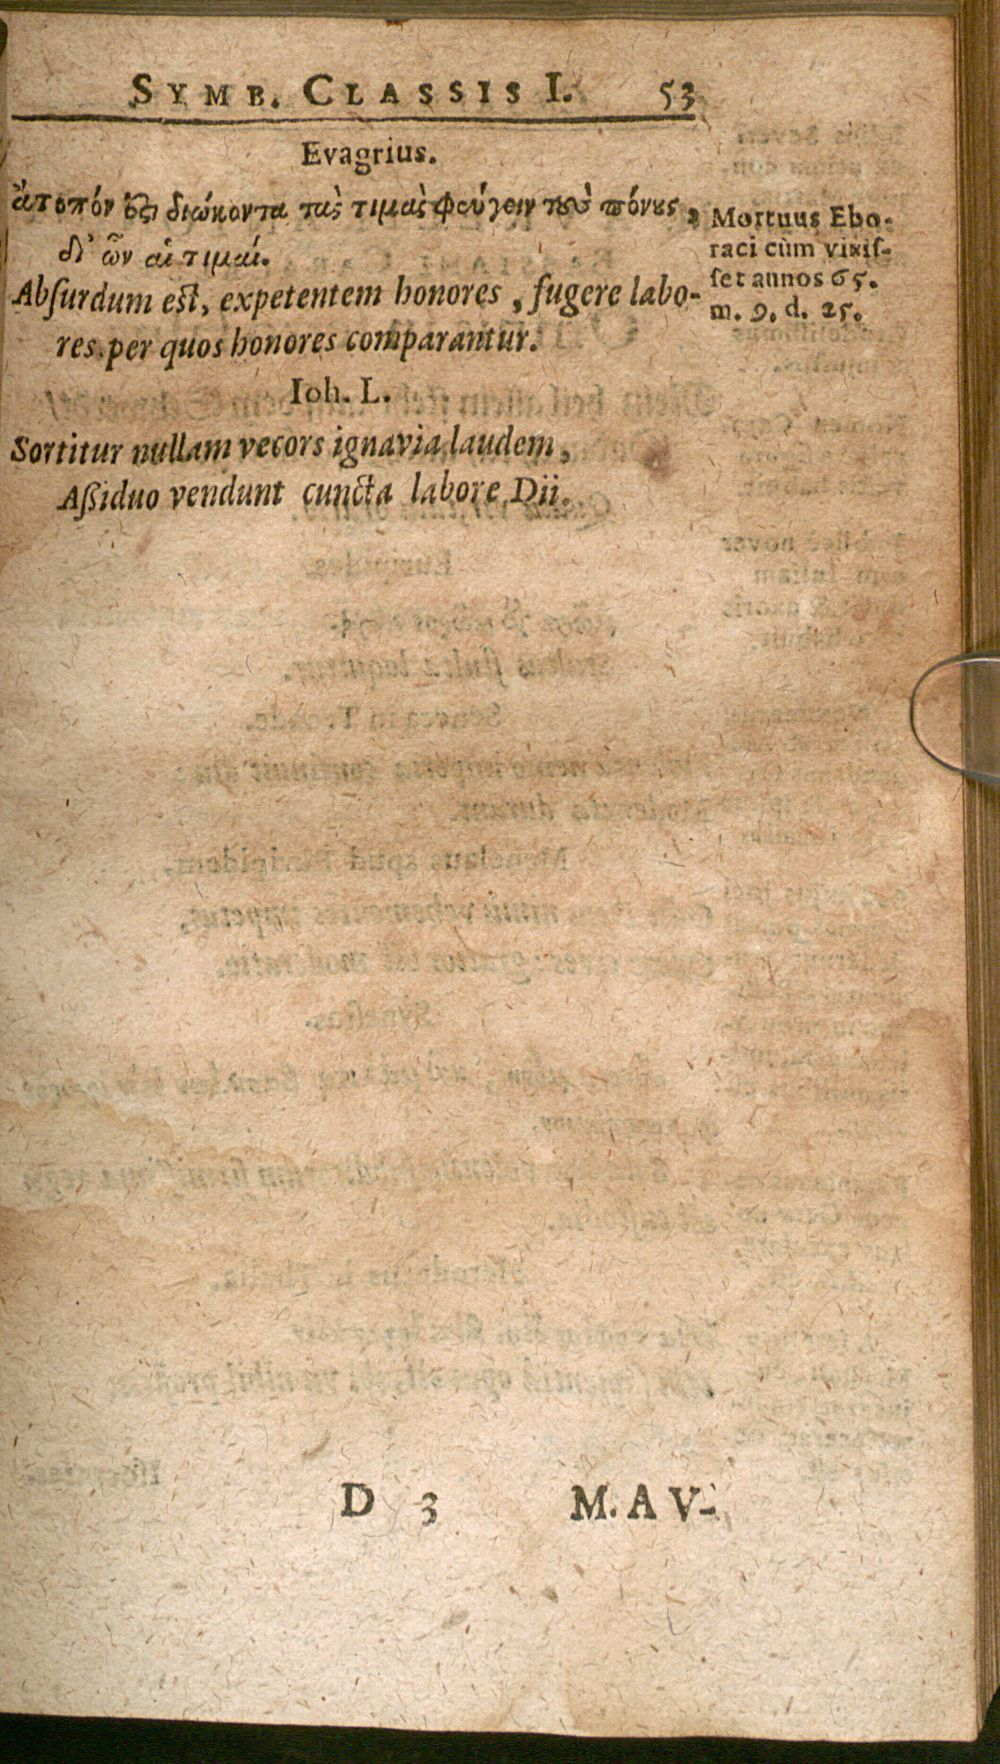 SYMB. CLASSIS I. 53
Evagrius.
ἄτοπόν ἐςι διώκοντα τὰς τιμὰς φεύγειν τοὺς πόνους,
δι' ὧν αἱ τιμαί.
Abſurdum eſt, expetentem honores, fugere labo-
res per quos honores comparantur.
Ioh. L.
Sortitur nullam vecors ignavia laudem,
Aſsiduo vendunt cuncta labore Dii.
Mortuus Ebo-
raci cùm vixiſ-
ſet annos 65.
m. 9. d. 25.
D 3 M. AV-